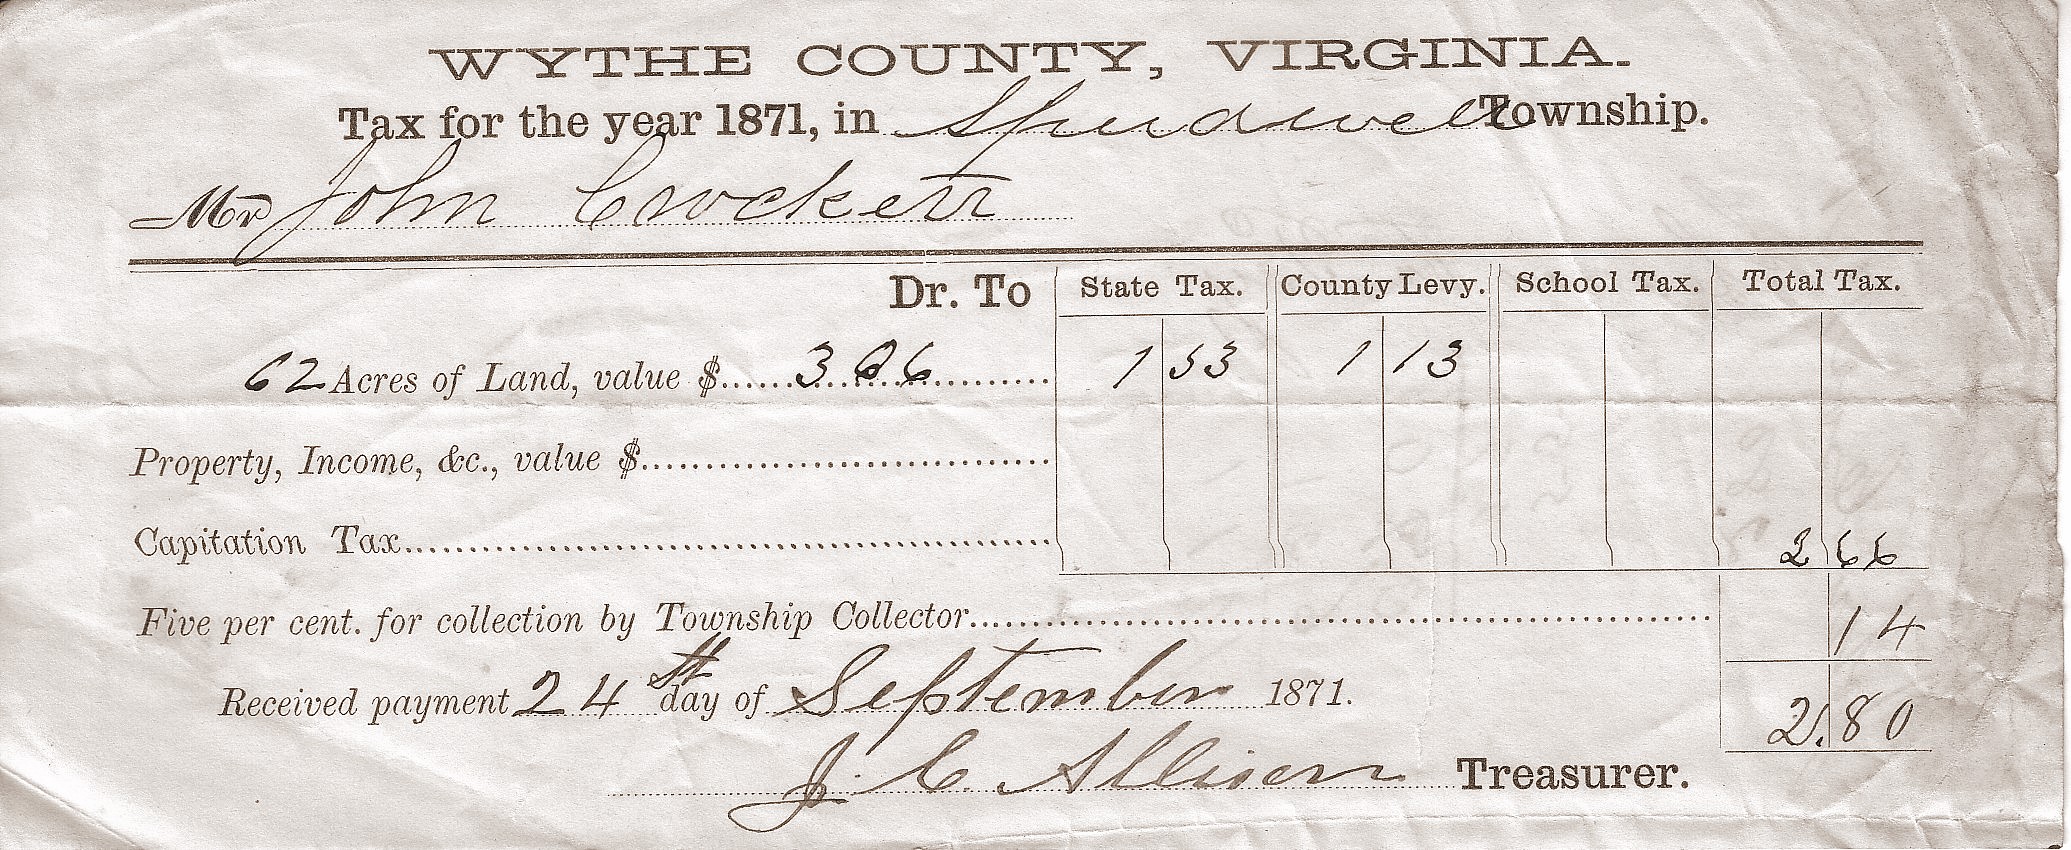 WYTHE COUNTY, VIRGINIA.
Tax for the year 1871, in Speedwell Township.
Mr John Crockett
Dr. To State Tax. County Levy. School Tax. Total Tax.
62 Acres of Land, value $ 306 1 53 1 13
Property, Income, &c., value $
Capitation Tax 2 66
Five per cent. for collection by Township Collector 14
Received payment 24th day of September 1871. 2.80
J. C. Allison Treasurer.